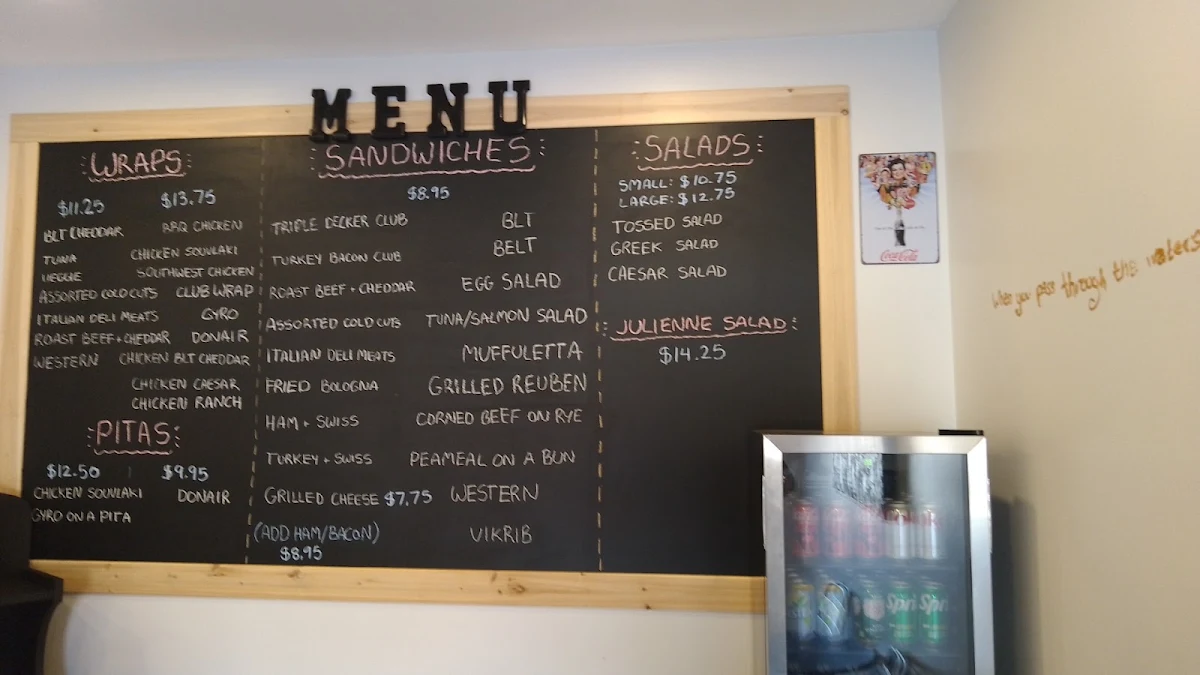 MENU
WRAPS
$11.25 $13.75
BLT CHEDDAR BBQ CHICKEN
TUNA CHICKEN SOUVLAKI
VEGGIE SOUTHWEST CHICKEN
ASSORTED COLD CUTS CLUB WRAP
ITALIAN DELI MEATS GYRO
ROAST BEEF+CHEDDAR DONAIR
WESTERN CHICKEN BLT CHEDDAR
CHICKEN CAESAR
CHICKEN RANCH
PITAS
$12.50 | $9.95
CHICKEN SOUVLAKI DONAIR
GYRO ON A PITA
SANDWICHES
$8.95
TRIPLE DECKER CLUB BLT
TURKEY BACON CLUB BELT
ROAST BEEF + CHEDDAR EGG SALAD
ASSORTED COLD CUTS TUNA/SALMON SALAD
ITALIAN DELI MEATS MUFFULETTA
FRIED BOLOGNA GRILLED REUBEN
HAM + SWISS CORNED BEEF ON RYE
TURKEY + SWISS PEAMEAL ON A BUN
GRILLED CHEESE $7.75 WESTERN
(ADD HAM/BACON) VIKRIB
$8.95
SALADS
SMALL: $10.75
LARGE: $12.75
TOSSED SALAD
GREEK SALAD
CAESAR SALAD
JULIENNE SALAD
$14.25
Coca-Cola
When you pass through the waters
Spri Spri